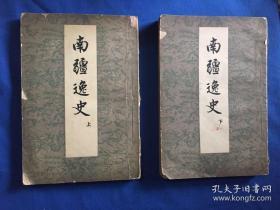 南疆逸史
上
南疆逸史
下
孔夫子旧书网